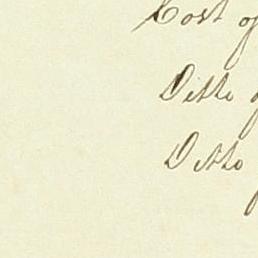 Cost of
Ditto
Ditto